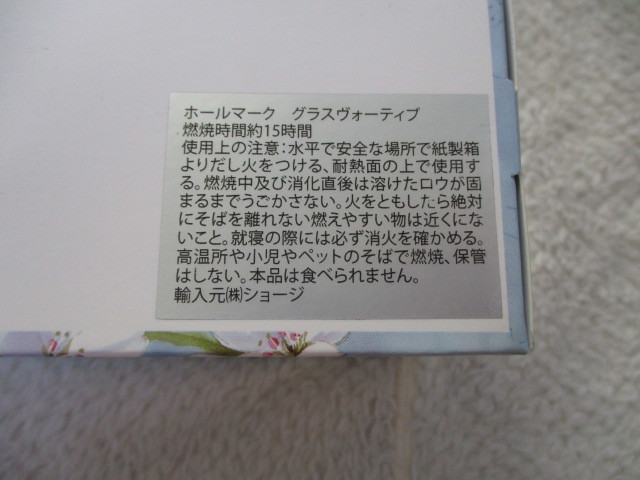 ホールマーク　グラスヴォーティブ
燃焼時間約15時間
使用上の注意：水平で安全な場所で紙製箱
よりだし火をつける、耐熱面の上で使用す
る。燃焼中及び消化直後は溶けたロウが固
まるまでうごかさない。火をともしたら絶対
にそばを離れない燃えやすい物は近くにな
いこと。就寝の際には必ず消火を確かめる。
高温所や小児やペットのそばで燃焼、保管
はしない。本品は食べられません。
輸入元㈱ショージ